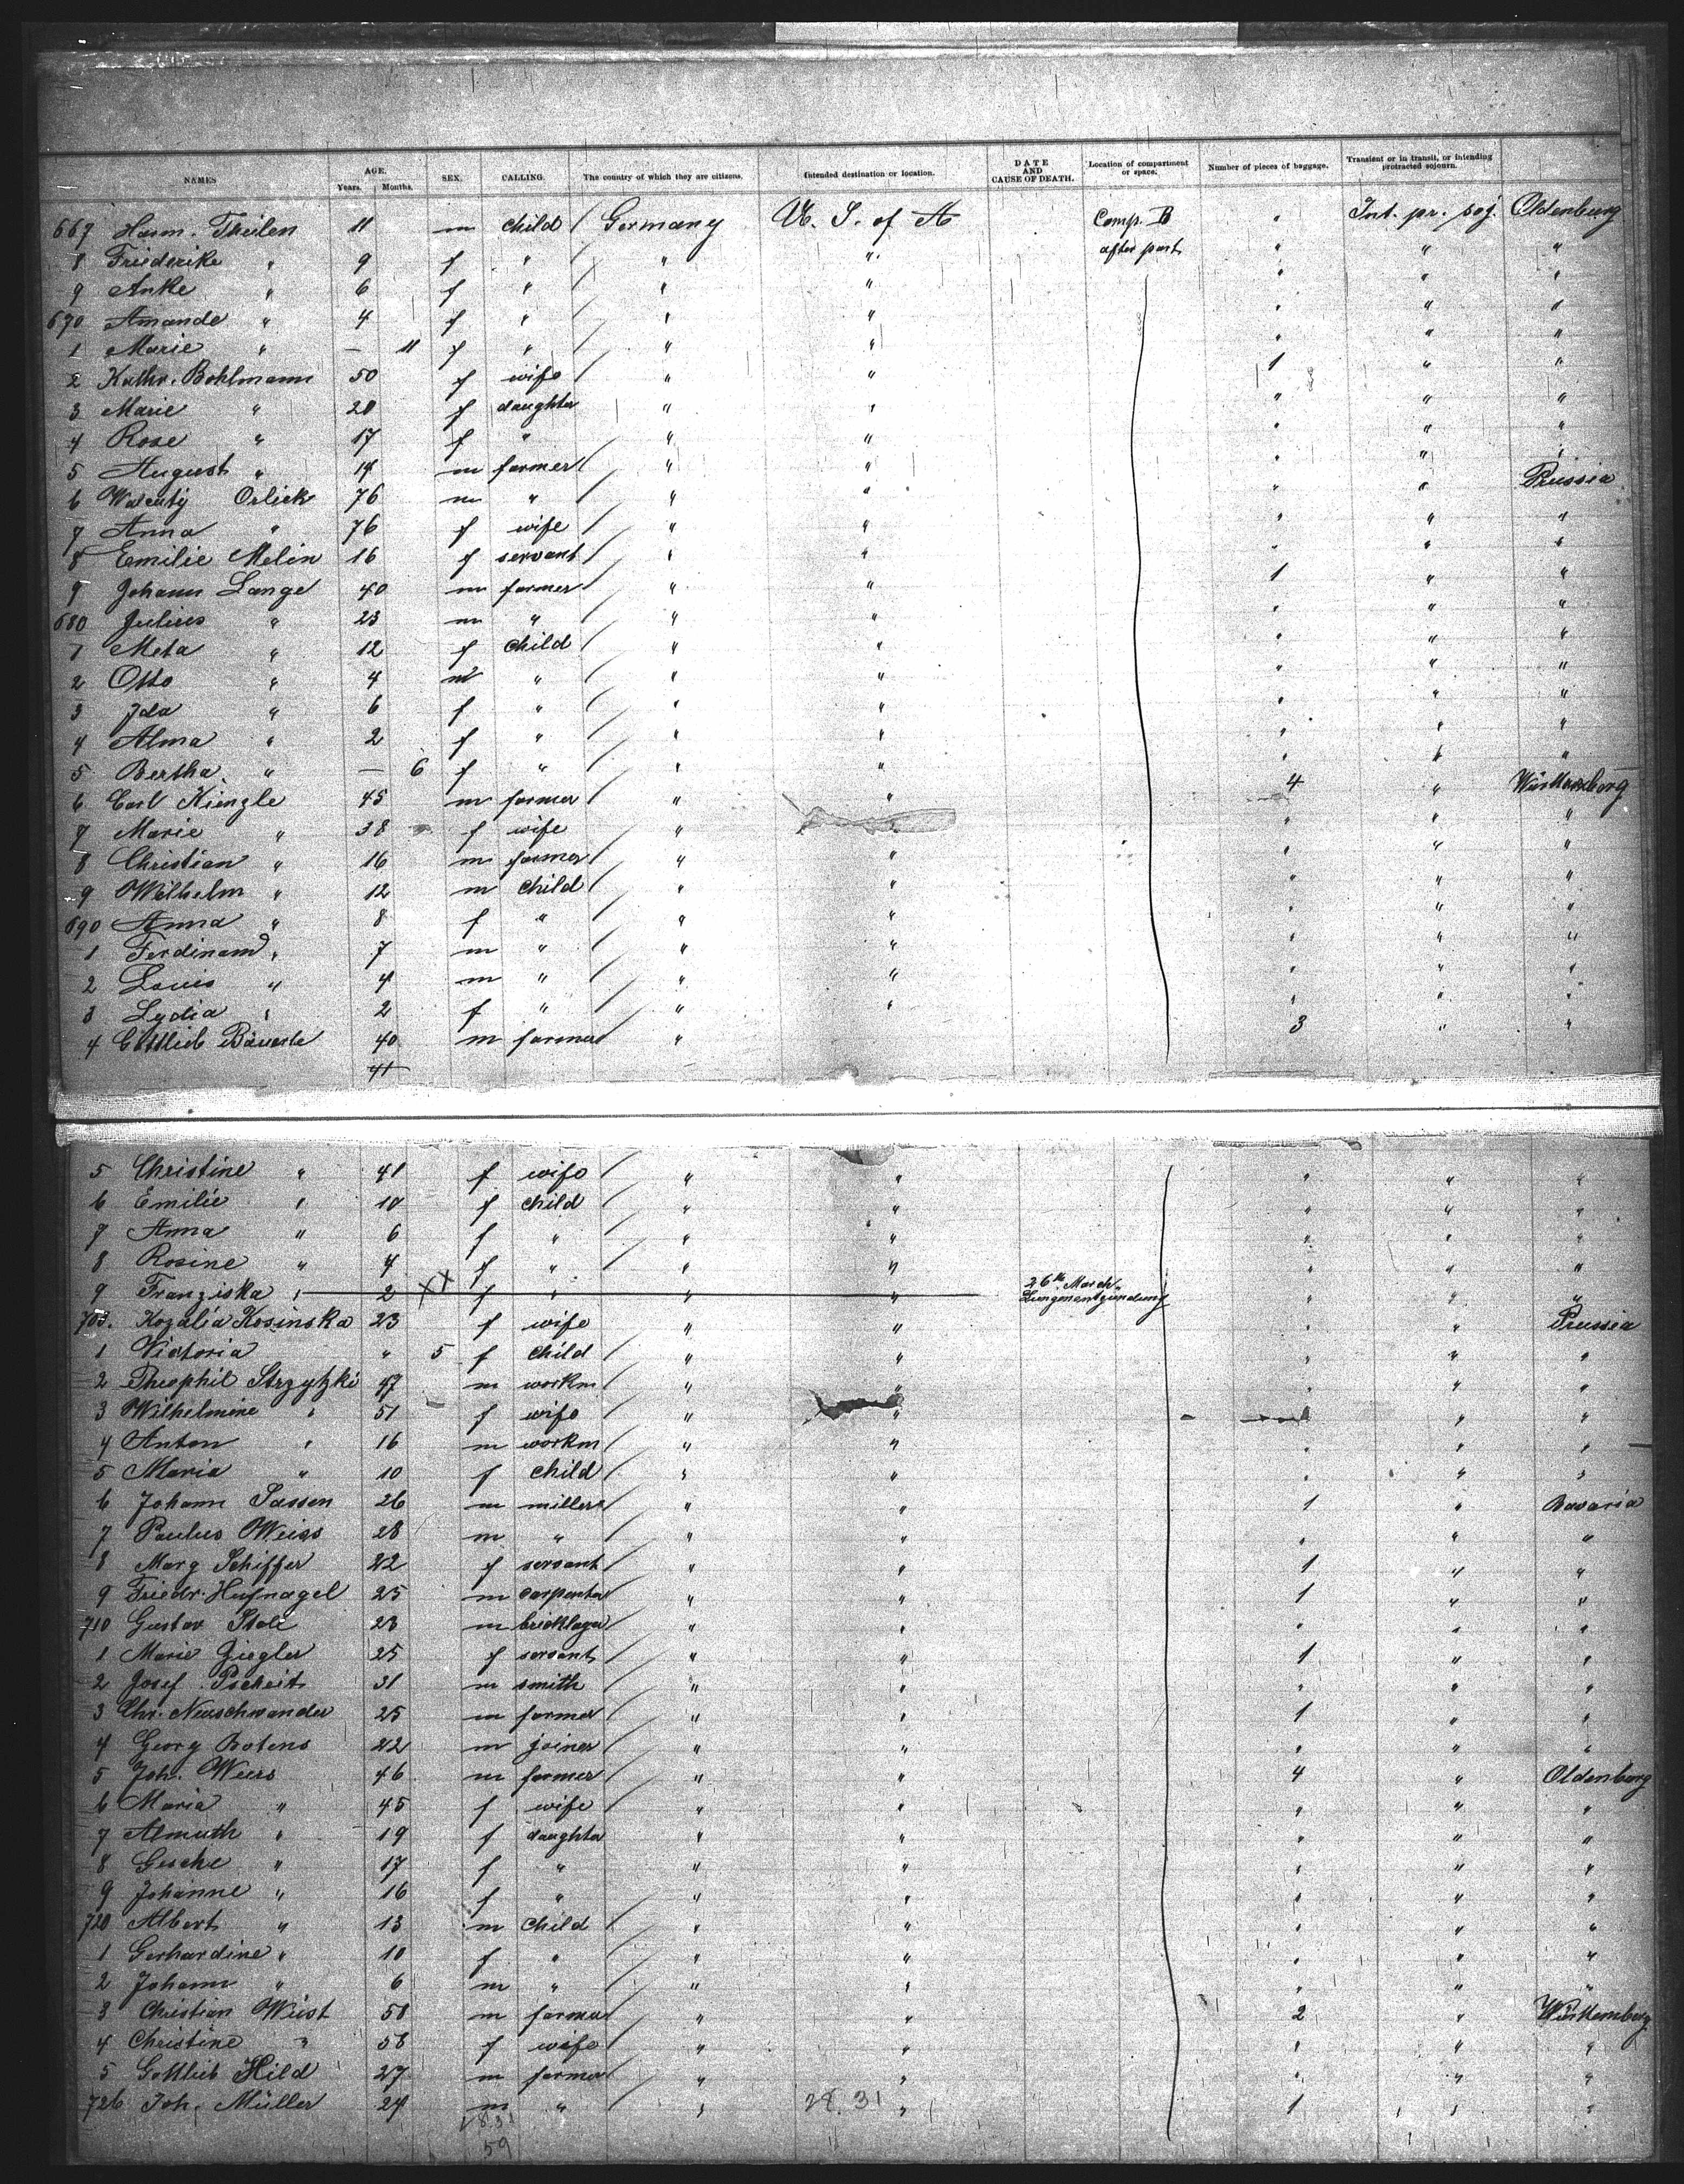 NAMES AGE. Years. Months. SEX. CALLING. The country of which they are citizens. Intended destination or location. DATE AND CAUSE OF DEATH. Location of compartment or space. Number of pieces of baggage. Transient or in transit, or intending protracted sojourn.
667 Harm. Theilen 11 m child Germany U. S. of A Comp. B " Int. pr. soj. Oldenburg
8 Friederike " 9 f " " " after part " " "
9 Anke " 6 f " " " " " "
670 Amande " 4 f " " " " " "
1 Marie " — 11 f " " " " " "
2 Kathr. Bohlmann 50 f wife " " 1 " "
3 Marie " 20 f daughter " " " " "
4 Rose " 17 f " " " " " "
5 August " 14 m farmer " " " " "
6 Orlick 76 m " " " " " Prussia
7 Anna " 76 f wife " " " " "
8 Emilie Melin 16 f servant " " " " "
9 Johann Lange 40 m farmer " " 1 " "
680 Julius " 23 m " " " " " "
1 Meta " 12 f child " " " " "
2 Otto " 4 m " " " " " "
3 Ida " 6 f " " " " " "
4 Alma " 2 f " " " " " "
5 Bertha " — 6 f " " " " " "
6 Carl Kienzle 45 m farmer " " 4 " Württemberg
7 Marie " 38 f wife " " " "
8 Christian " 16 m farmer " " " " "
9 Wilhelm " 12 m child " " " " "
690 Anna " 8 f " " " " " "
1 Ferdinand " 7 m " " " " " "
2 Louis " 4 m " " " " " "
3 Lydia " 2 f " " " " " "
4 Gottlieb Bäuerle 40 m farmer " 3 " "
41
5 Christine " 41 f wife " " " " "
6 Emilie " 10 f child " " " " "
7 Anna " 6 f " " " " " "
8 Rosine " 4 f " " " " " "
9 Franziska " 2 XX f " " " 26th March Lungenentzündung " " "
700. Kozalia Kosinska 23 f wife " " " " Prussia
1 Victoria " 5 f child " " " " "
2 Theophil Strzytzki 47 m workm " " " " "
3 Wilhelmine " 51 f wife " " " "
4 Anton " 16 m workm " " " " "
5 Maria " 10 f child " " " " "
6 Johann Sassen 26 m miller " " 1 " Bavaria
7 Paulus Weiss 28 m " " " " " "
8 Marg Schiffer 22 f servant " " 1 " "
9 Friedr. Hufnagel 25 m carpenter " " 1 " "
710 Gustav 23 m bricklayer " " " " "
1 Marie Ziegler 25 f servant " " 1 " "
2 Josef Pscheit 31 m smith " " " " "
3 Chr. Neuschwander 25 m farmer " " 1 " "
4 Georg Botens 22 m joiner " " " " "
5 Joh. Weers 46 m farmer " " 4 " Oldenburg
6 Maria " 45 f wife " " " " "
7 Almuth " 19 f daughter " " " " "
8 Gesche " 17 f " " " " " "
9 Johanne " 16 f " " " " " "
720 Albert " 13 m child " " " " "
1 Gerhardine " 10 f " " " " " "
2 Johann " 6 m " " " " " "
3 Christian Wüst 58 m farmer " " 2 " Württemberg
4 Christine " 58 f wife " " " " "
5 Gottlieb Hild 27 m farmer " " " " "
726 Joh. Müller 24 m " " 28.31 " 1 " "
28.31
59